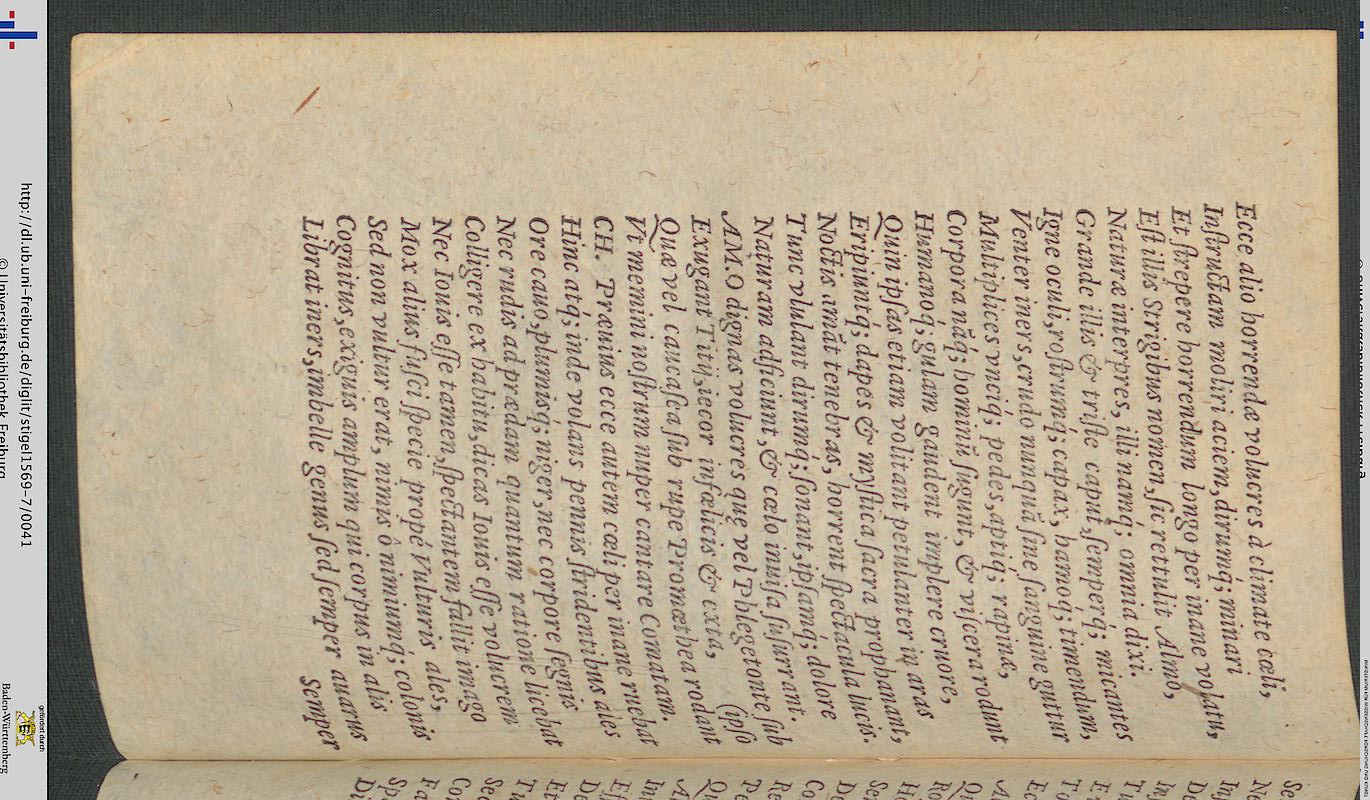 Ecce alio horrendæ volucres à climate cœli,
Inſtructam moliri aciem, dirumq́; minari
Et ſtrepere horrendum longo per inane volatu,
Eſt illis Strigibus nomen, ſic rettulit Almo,
Naturæ interpres, illi namq́; omnia dixi.
Grande illis & triſte caput, ſemperq́; micantes
Igne oculi, roſtrumq́; capax, hamoq́; timendum,
Venter iners, crudo nunquã ſine ſanguine guttur
Multiplices vnciq́; pedes, aptiq́; rapinæ,
Corpora nãq́; hominũ ſugunt, & viſcera rodunt
Humanoq́; gulam gaudent implere cruore,
Quin ipſas etiam volitant petulanter in aras
Eripiuntq́; dapes & myſtica ſacra prophanant,
Noctis amãt tenebras, horrent ſpectacula lucis.
Tunc vlulant dirumq́; ſonant, ipſamq́; dolore
Naturam adficiunt, & cœlo inuiſa ſuſurrant.
AM. O dignas volucres quę vel Phlegetonte ſub
(ipſo
Exugant Titij, iecor infœlicis & exta,
Quæ vel caucaſea ſub rupe Promæthea rodant
Vt memini noſtrum nuper cantare Comatam.
CH. Præuius ecce autem cœli per inane ruebat
Hinc atq́; inde volans pennis ſtridentibus ales
Ore cauo, plumisq́; niger, nec corpore ſegnis
Nec rudis ad prædam quantum ratione licebat
Colligere ex habitu, dicas Iouis eſſe volucrem
Nec Iouis eſſe tamen, ſpectantem fallit imago
Mox alius fuſci ſpecie propè Vulturis ales,
Sed non vultur erat, nimis ô nimiumq́; colonis
Cognitus, exiguis amplum qui corpus in alis
Librat iners, imbelle genus ſed ſemper auarus
Semper
http://dl.ub.uni-freiburg.de/diglit/stigel1569-7/0041
© Universitätsbibliothek Freiburg
gefördert durch
Baden-Württemberg